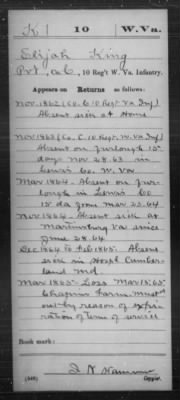 K | 10 | W.Va.
Elijah King
Pvt, Co. C, 10 Reg't W. Va. Infantry.
Appears on Returns as follows:
Nov. 1862 (Co. C 10 Reg W. Va Inf)
Absent sick at Home
Nov. 1863 (Co. C. 10 Reg. W. Va Inf)
Absent on furlough 15
days Nov 28. 63 in
Lewis Co. W. Va
Mar 1864 - Absent on fur-
lough in Lewis Co
15 da from Mar 23. 64
Nov 1864 - Absent sick at
Martinsburg Va since
June 28. 64
Dec 1864 to Feb 1865 - Absent
sick in Hospl Cumber-
land Md.
Mar 1865 - Loss Mar 15. 65
Chapins Farm. Must
out by reason of expi-
ration of term of service
Book mark:
(546)
Copyist.